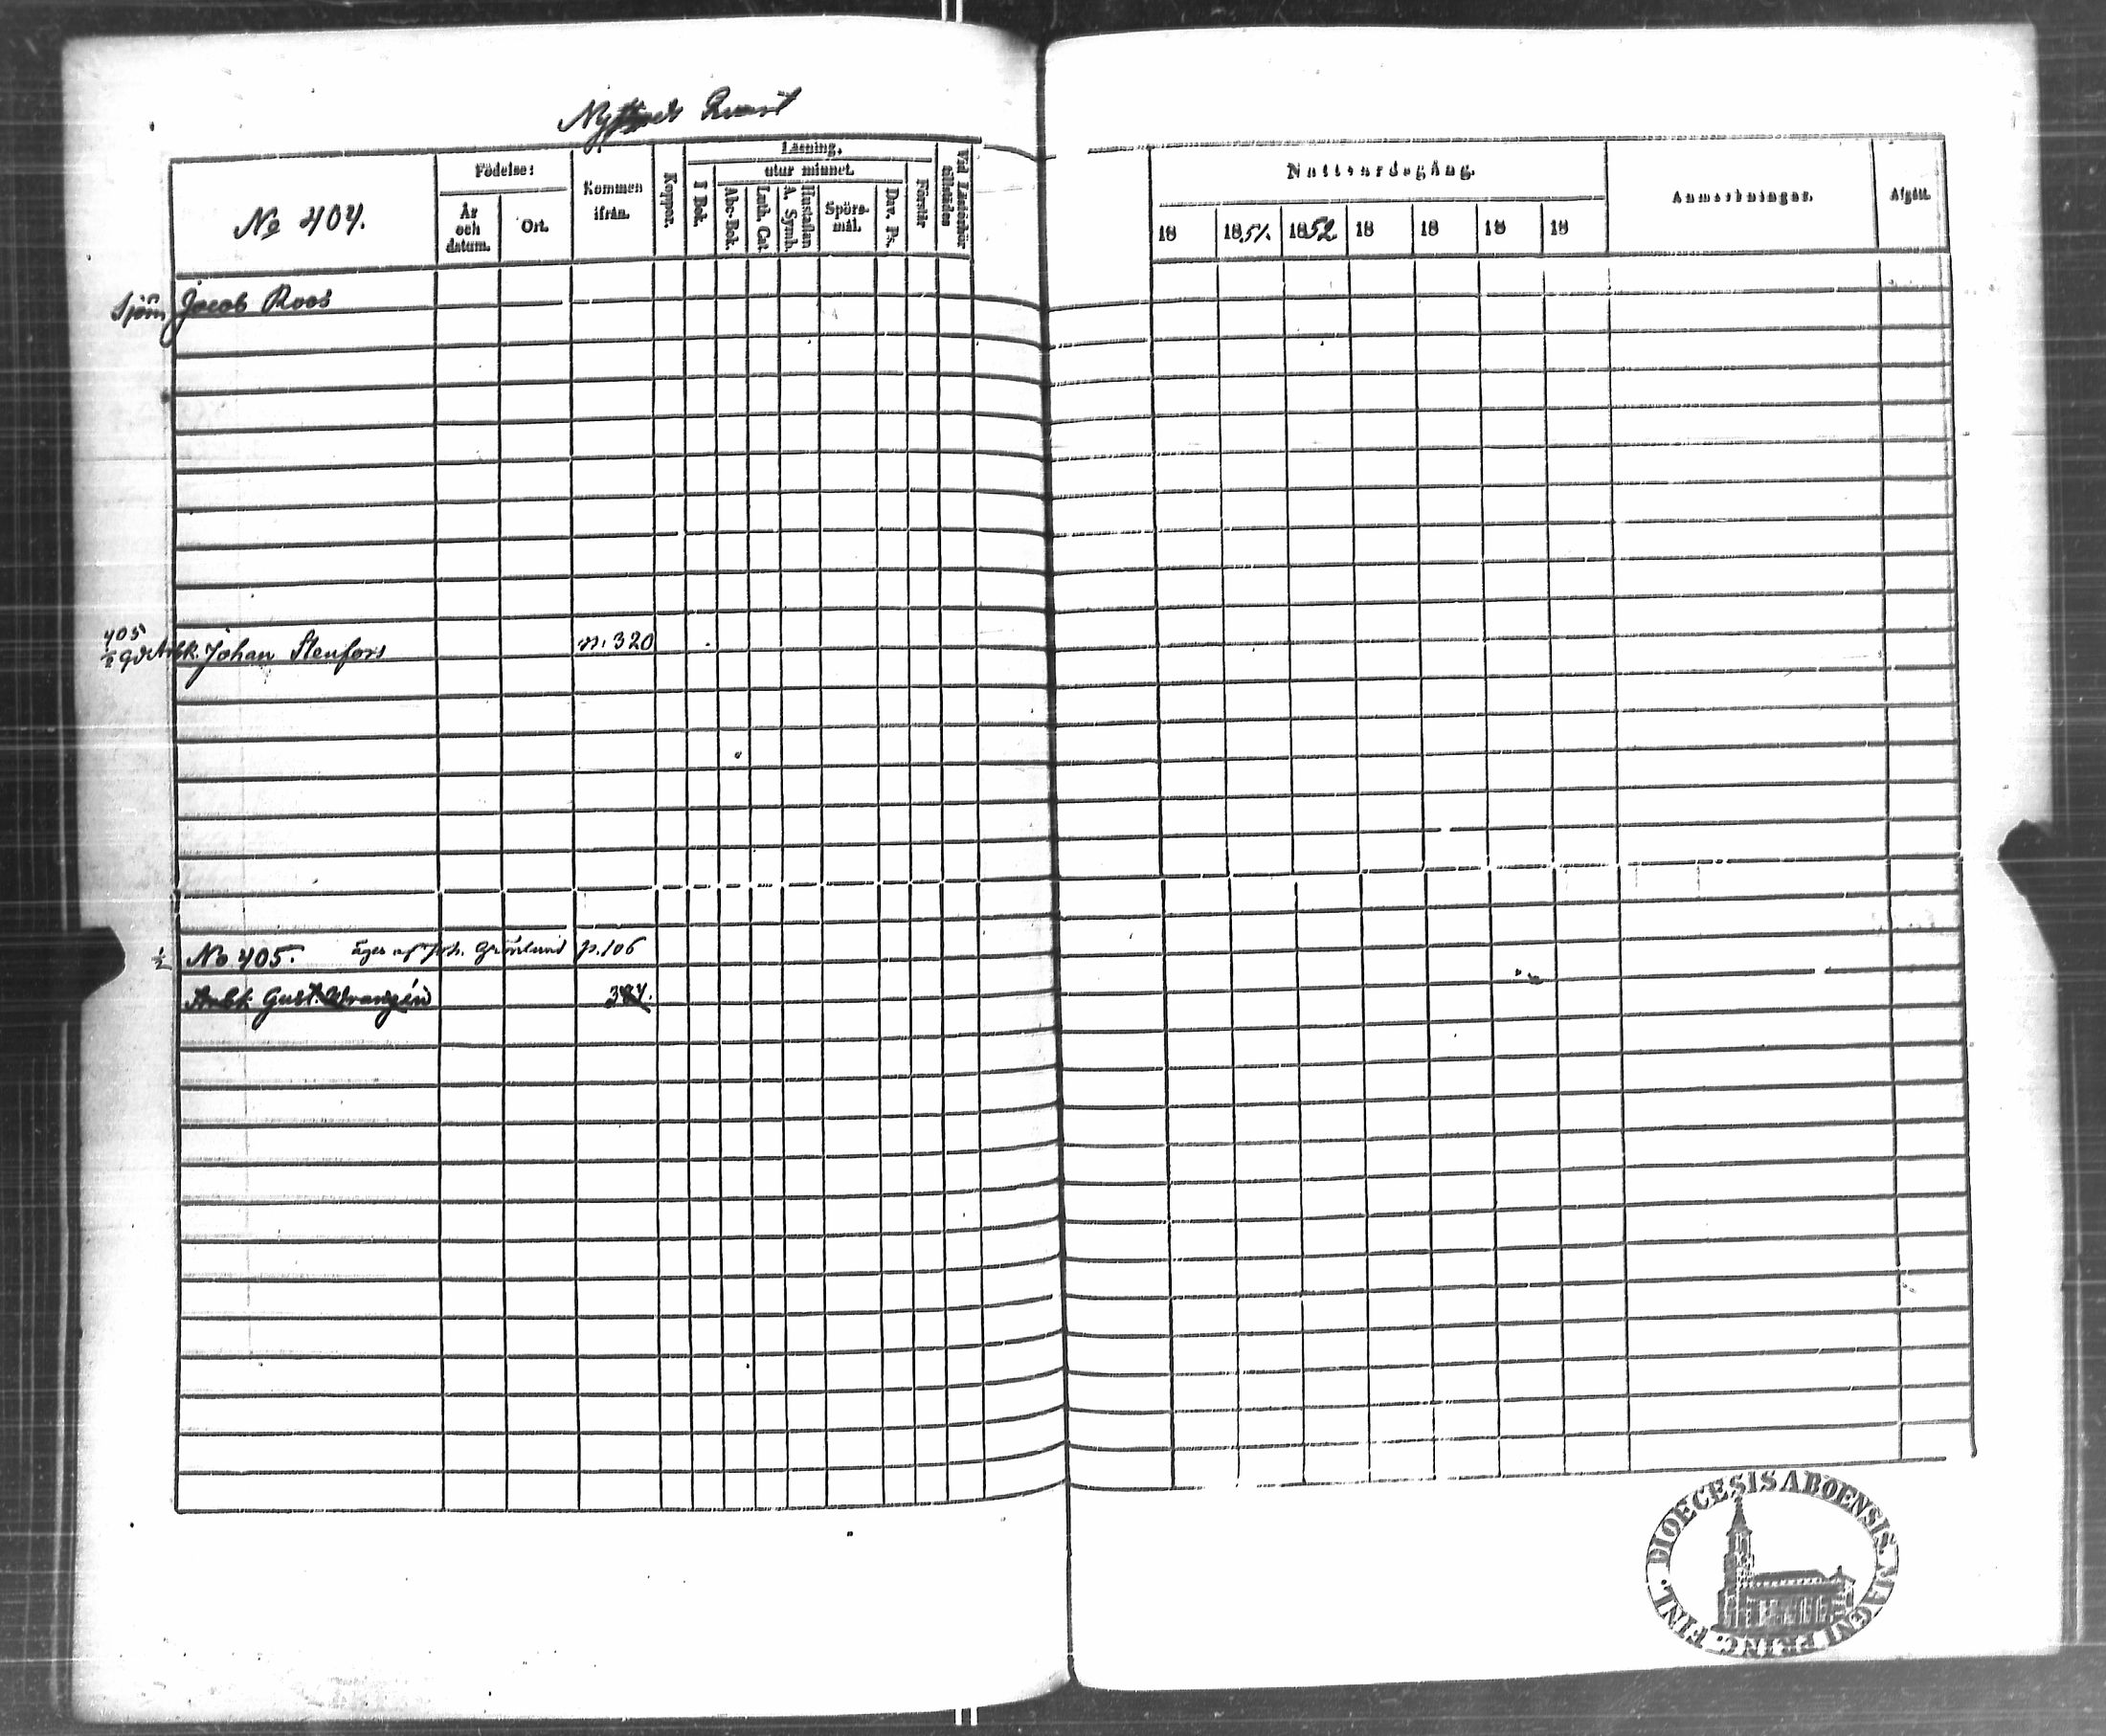 No 404.
Födelse:
År och datum.
Ort.
Kommen ifrån.
Koppor.
Läsning,
I Bok.
utur minnet.
Abc-Bok.
Luth. Cat.
Hustaflan A. Symb.
Spörs-mål.
Dav. Ps.
Förstår
Vid Läsförhör tillstädes
Nattvardsgång.
18 1851. 1852 18 18 18 18
Anmärkningar.
Afgått.
Sjöm Jacob Roos
405
½ Arbk. Johan Stenfors n. 320
½ No 405. äges af Joh. Grönlund p. 106
Arbk Gust.
DIOECESIS ABOENSIS. MAGNI PRINC. FINL.